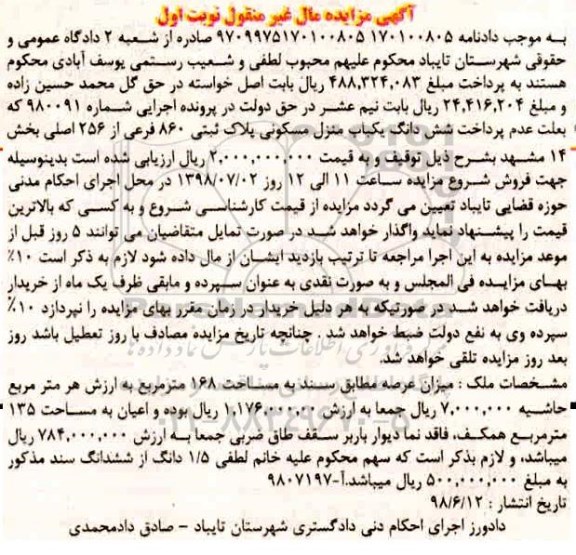 آگهی مزایده مال غیر منقول نوبت اول
به موجب دادنامه ۹۷۰۹۹۷۵۱۷۰۱۰۰۸۰۵ ۱۷۰۱۰۰۸۰۵ صادره از شعبه ۲ دادگاه عمومی و
حقوقی شهرستان تایباد محکوم علیهم محبوب لطفی و شعیب رستمی یوسف آبادی محکوم
هستند به پرداخت مبلغ ۴۸۸,۳۲۴,۰۸۳ ریال بابت اصل خواسته در حق گل محمد حسین زاده
و مبلغ ۲۴,۴۱۶,۲۰۴ ریال بابت نیم عشر در حق دولت در پرونده اجرایی شماره ۹۸۰۰۹۱ که
بعلت عدم پرداخت شش دانگ یکباب منزل مسکونی پلاک ثبتی ۸۶۰ فرعی از ۲۵۶ اصلی بخش
۱۴ مشهد بشرح ذیل توقیف و به قیمت ۲,۰۰۰,۰۰۰,۰۰۰ ریال ارزیابی شده است بدینوسیله
جهت فروش شروع مزایده ساعت ۱۱ الی ۱۲ روز ۱۳۹۸/۰۷/۰۲ در محل اجرای احکام مدنی
حوزه قضایی تایباد تعیین می گردد مزایده از قیمت کارشناسی شروع و به کسی که بالاترین
قیمت را پیشنهاد نماید واگذار خواهد شد در صورت تمایل متقاضیان می توانند ۵ روز قبل از
موعد مزایده به این اجرا مراجعه تا ترتیب بازدید ایشان از مال داده شود لازم به ذکر است ۱۰٪
بهای مزایده فی المجلس و به صورت نقدی به عنوان سپرده و مابقی ظرف یک ماه از خریدار
دریافت خواهد شد در صورتیکه به هر دلیل خریدار در زمان مقرر بهای مزایده را نپردازد ۱۰٪
سپرده وی به نفع دولت ضبط خواهد شد . چنانچه تاریخ مزایده مصادف با روز تعطیل باشد روز
بعد روز مزایده تلقی خواهد شد.
مشخصات ملک : میزان عرصه مطابق سند به مساحت ۱۶۸ مترمربع به ارزش هر متر مربع
حاشیه ۷,۰۰۰,۰۰۰ ریال جمعا به ارزش ۱,۱۷۶,۰۰۰,۰۰۰ ریال بوده و اعیان به مساحت ۱۳۵
مترمربع همکف، فاقد نما دیوار باربر سقف طاق ضربی جمعا به ارزش ۷۸۴,۰۰۰,۰۰۰ ریال
میباشد، و لازم بذکر است که سهم محکوم علیه خانم لطفی ۱/۵ دانگ از ششدانگ سند مذکور
به مبلغ ۵۰۰,۰۰۰,۰۰۰ ریال میباشد.آ-۹۸۰۷۱۹۷
تاریخ انتشار : ۹۸/۶/۱۲
دادورز اجرای احکام دنی دادگستری شهرستان تایباد - صادق دادمحمدی